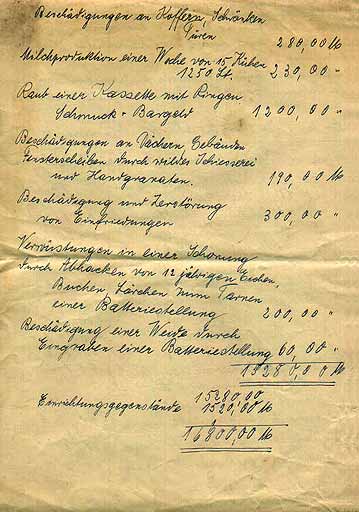 Beschädigungen an Koffern, Schränken
Türen 280,00 M
Milchproduktion einer Woche von 15 Kühen
1250 Lt. 230,00 "
Raub einer Kassette mit Ringen
Schmuck + Bargeld 1200,00 "
Beschädigungen an Dächern, Gebäuden
Fensterscheiben durch wildes Schiesserei
und Handgranaten. 190,00 M
Beschädigung und Zerstörung
von Einfriedungen 300,00 "
Verwüstungen in einer Schonung
durch Abhacken von 12 jährigen Eichen,
Buchen, Lärchen zum Tarnen
einer Batteriestellung 200,00 "
Beschädigung einer Weide durch
Eingraben einer Batteriestellung 60,00 "
15280,0 M
15280,00
Einrichtungsgegenstände 1520,00 M
16800,00 M